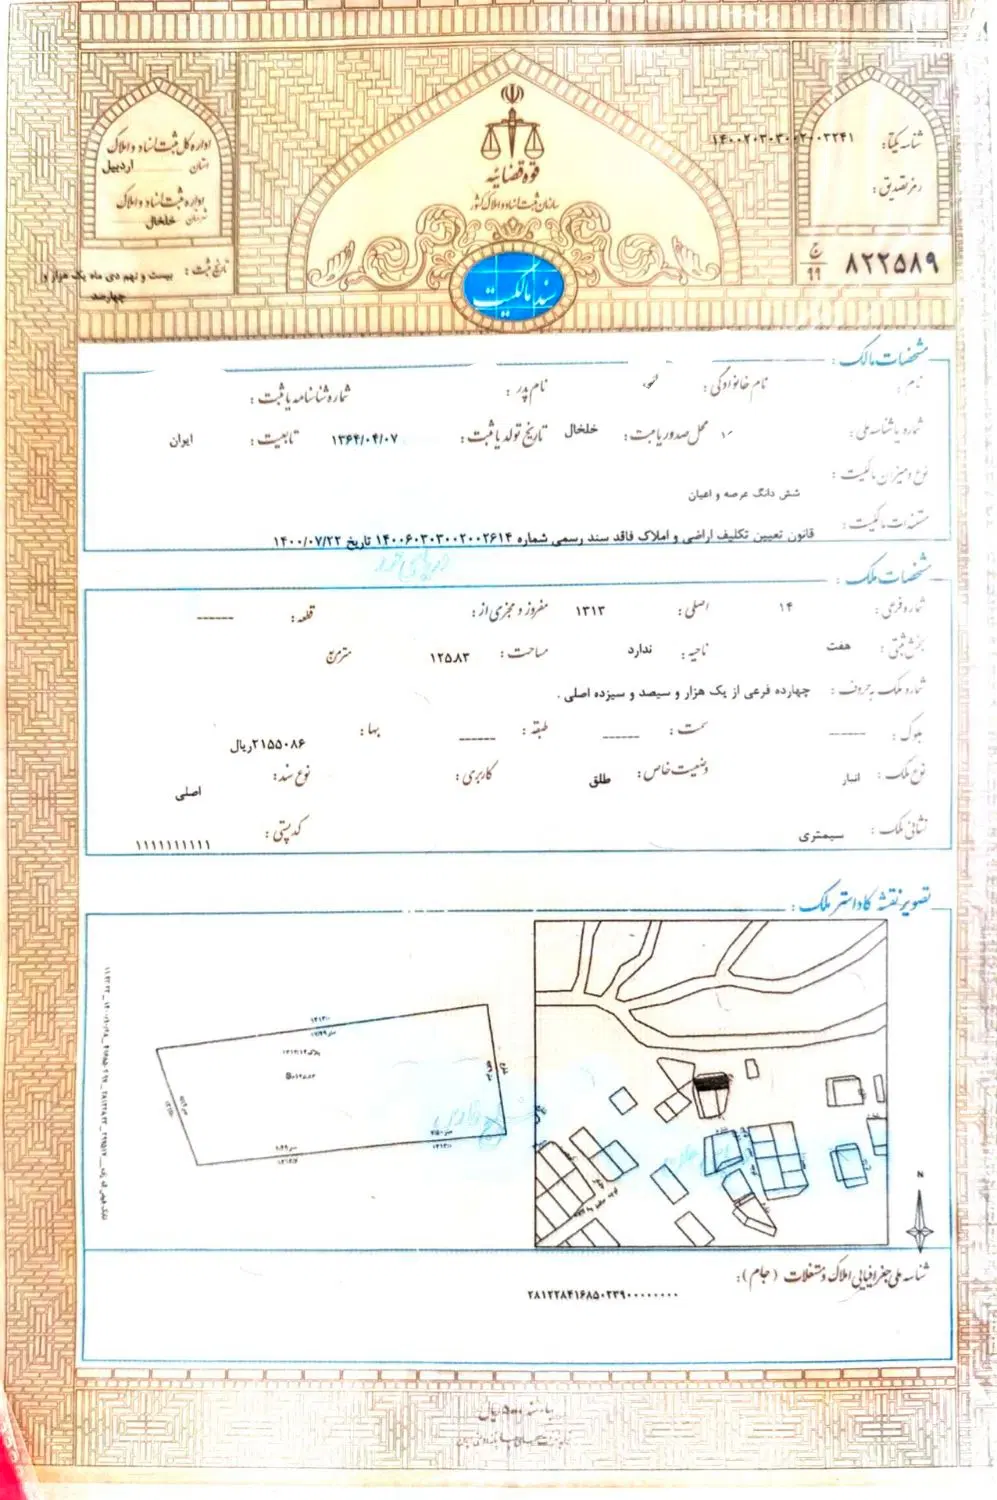 قوه قضائیه
سازمان ثبت اسناد و املاک کشور
سند مالکیت
اداره کل ثبت اسناد و املاک
استان اردبیل
اداره ثبت اسناد و املاک
شهرستان خلخال
تاریخ ثبت : بیست و نهم دی ماه یک هزار و
چهارصد
شناسه یکتا: ۱۴۰۰۲۰۳۰۳۰۰۲۰۰۳۲۴۱
رمز تصدیق :
ج ۹۹ ۸۲۲۵۸۹
مشخصات مالک :
نام : نام خانوادگی : نام پدر : شماره شناسنامه یا ثبت :
شماره یا شناسه ملی : محل صدور یا ثبت : خلخال تاریخ تولد یا ثبت : ۱۳۶۴/۰۴/۰۷ تابعیت : ایران
نوع و میزان مالکیت :
شش دانگ عرصه و اعیان
مستندات مالکیت :
قانون تعیین تکلیف اراضی و املاک فاقد سند رسمی شماره ۱۴۰۰۶۰۳۰۳۰۰۲۰۰۲۶۱۴ تاریخ ۱۴۰۰/۰۷/۲۲
مشخصات ملک :
شماره فرعی : ۱۴ اصلی : ۱۳۱۳ مفروز و مجزی از : قطعه : ------
بخش ثبتی : هفت ناحیه : ندارد مساحت : ۱۲۵.۸۳ مترمربع
شماره ملک به حروف : چهارده فرعی از یک هزار و سیصد و سیزده اصلی .
بلوک : ------ سمت : ------ طبقه : ------ بها : ۲۱۵۵۰۸۶ریال
نوع ملک : انبار وضعیت خاص : طلق کاربری : نوع سند : اصلی
نشانی ملک : سیمتری کد پستی : ۱۱۱۱۱۱۱۱۱۱
تصویر نقشه کاداستر ملک :
N
شناسه ملی جغرافیایی املاک و مستغلات (جام) :
۲۸۱۲۲۸۴۱۶۸۵۰۲۳۹۰۰۰۰۰۰۰۰